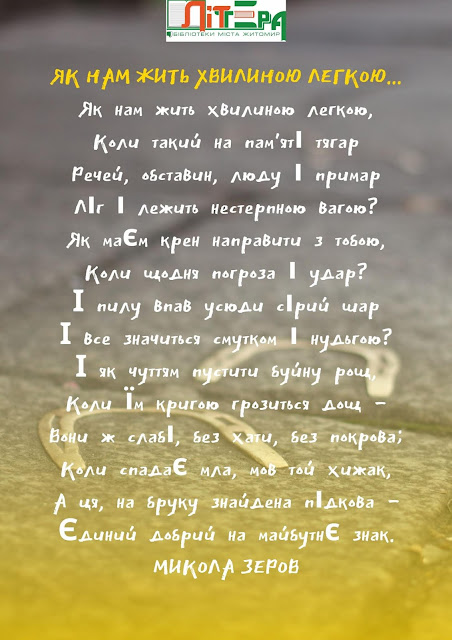 ЛІТТЕРА
БІБЛІОТЕКИ МІСТА ЖИТОМИР
ЯК НАМ ЖИТЬ ХВИЛИНОЮ ЛЕГКОЮ...
Як нам жить хвилиною легкою,
Коли такий на пам'яті тягар
Речей, обставин, люду І примар
ЛІг І лежить нестерпною вагою?
Як маЄм крен направити з тобою,
Коли щодня погроза І удар?
І пилу впав усюди сІрий шар
І все значиться смутком І нудьгою?
І як чуттям пустити буйну рощ,
Коли Їм кригою грозиться дощ –
Вони ж слабІ, без хати, без покрова;
Коли спадаЄ мла, мов той хижак,
А ця, на бруку знайдена пІдкова –
Єдиний добрий на майбутнЄ знак.
МИКОЛА ЗЕРОВ